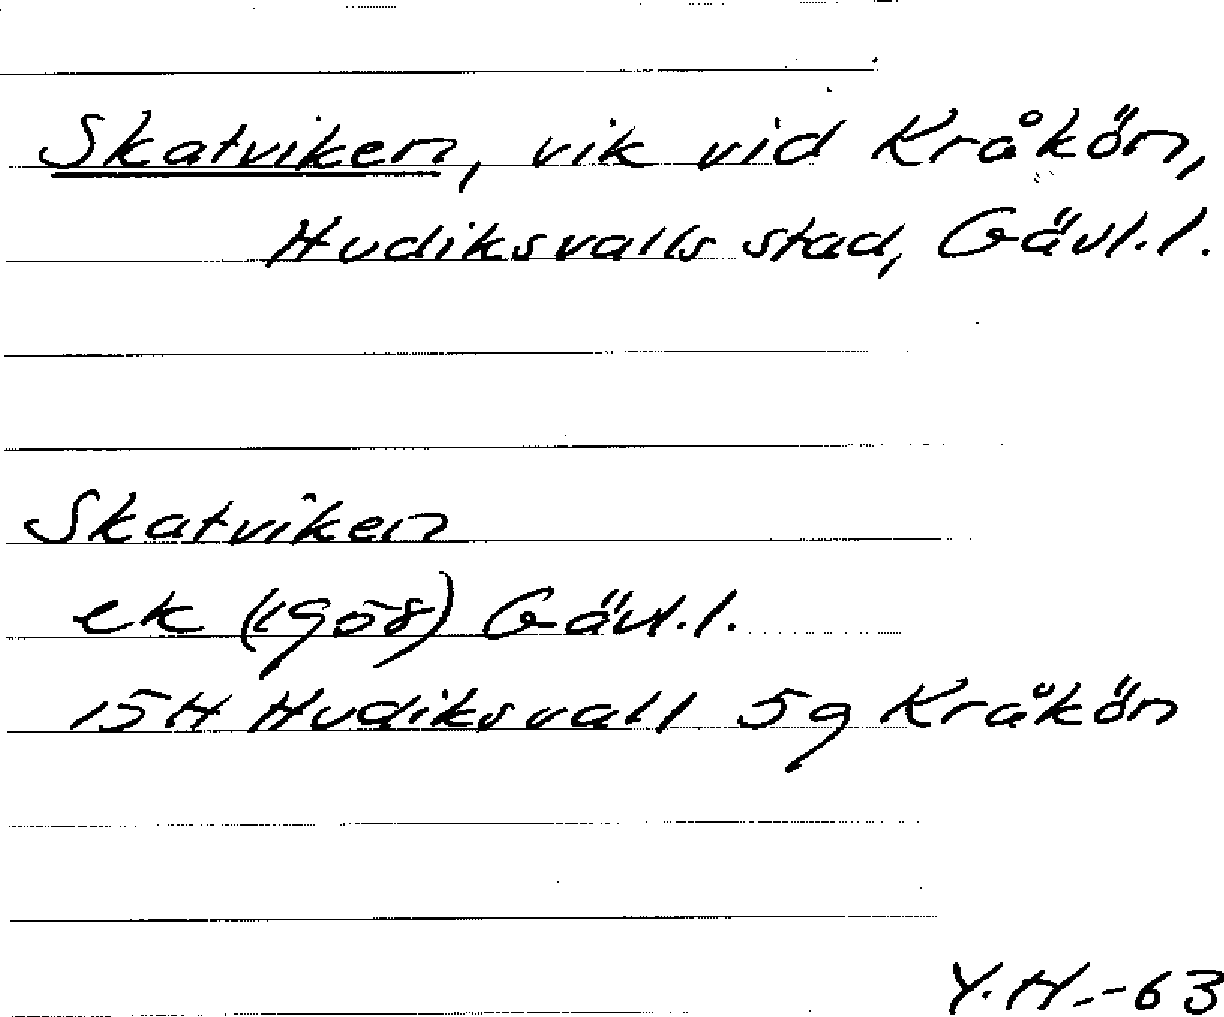 Skatviken, vik vid Kråkön,
Hudiksvalls stad, Gävl.l.
Skatviken
ek (1958) Gävl.l.
15H Hudiksvall 5g Kråkön
Y.H.-63